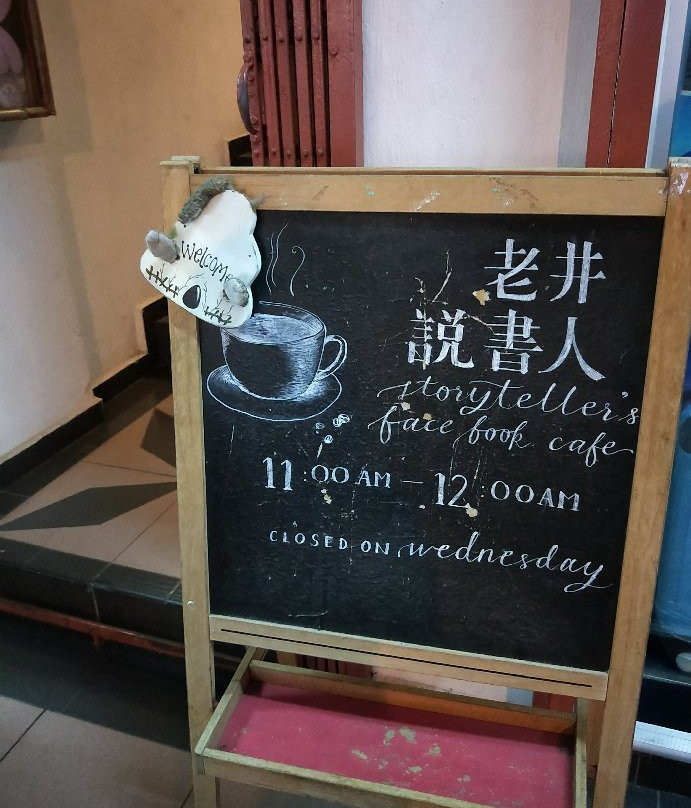 welcome
老井
説書人
storyteller's
face book cafe
11:00 AM — 12:00 AM
CLOSED ON wednesday